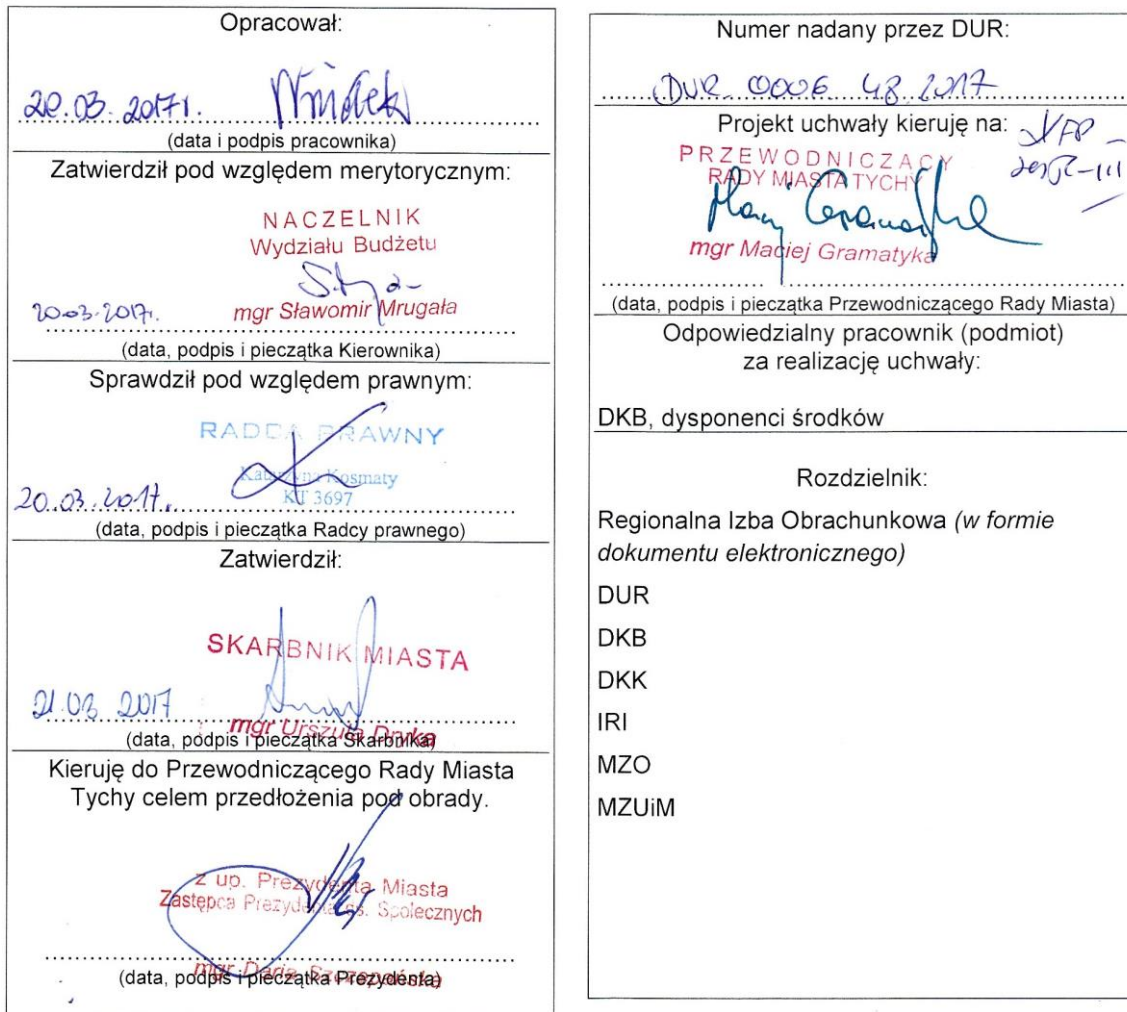 Opracował:
20.03.2017r.
(data i podpis pracownika)
Zatwierdził pod względem merytorycznym:
NACZELNIK
Wydziału Budżetu
20.03.2017r.
mgr Sławomir Mrugała
(data, podpis i pieczątka Kierownika)
Sprawdził pod względem prawnym:
RADCA PRAWNY
Katarzyna Kosmaty
KT 3697
20.03.2017r.
(data, podpis i pieczątka Radcy prawnego)
Zatwierdził:
SKARBNIK MIASTA
21.03.2017
mgr Urszula Dryka
(data, podpis i pieczątka Skarbnika)
Kieruję do Przewodniczącego Rady Miasta
Tychy celem przedłożenia pod obrady.
z up. Prezydenta Miasta
Zastępca Prezydenta ds. Społecznych
mgr Daria Szczepańska
(data, podpis i pieczątka Prezydenta)
Numer nadany przez DUR:
DUR 0006 48 2017
Projekt uchwały kieruję na:
PRZEWODNICZĄCY
RADY MIASTA TYCHY
mgr Maciej Gramatyka
(data, podpis i pieczątka Przewodniczącego Rady Miasta)
Odpowiedzialny pracownik (podmiot)
za realizację uchwały:
DKB, dysponenci środków
Rozdzielnik:
Regionalna Izba Obrachunkowa (w formie
dokumentu elektronicznego)
DUR
DKB
DKK
IRI
MZO
MZUiM